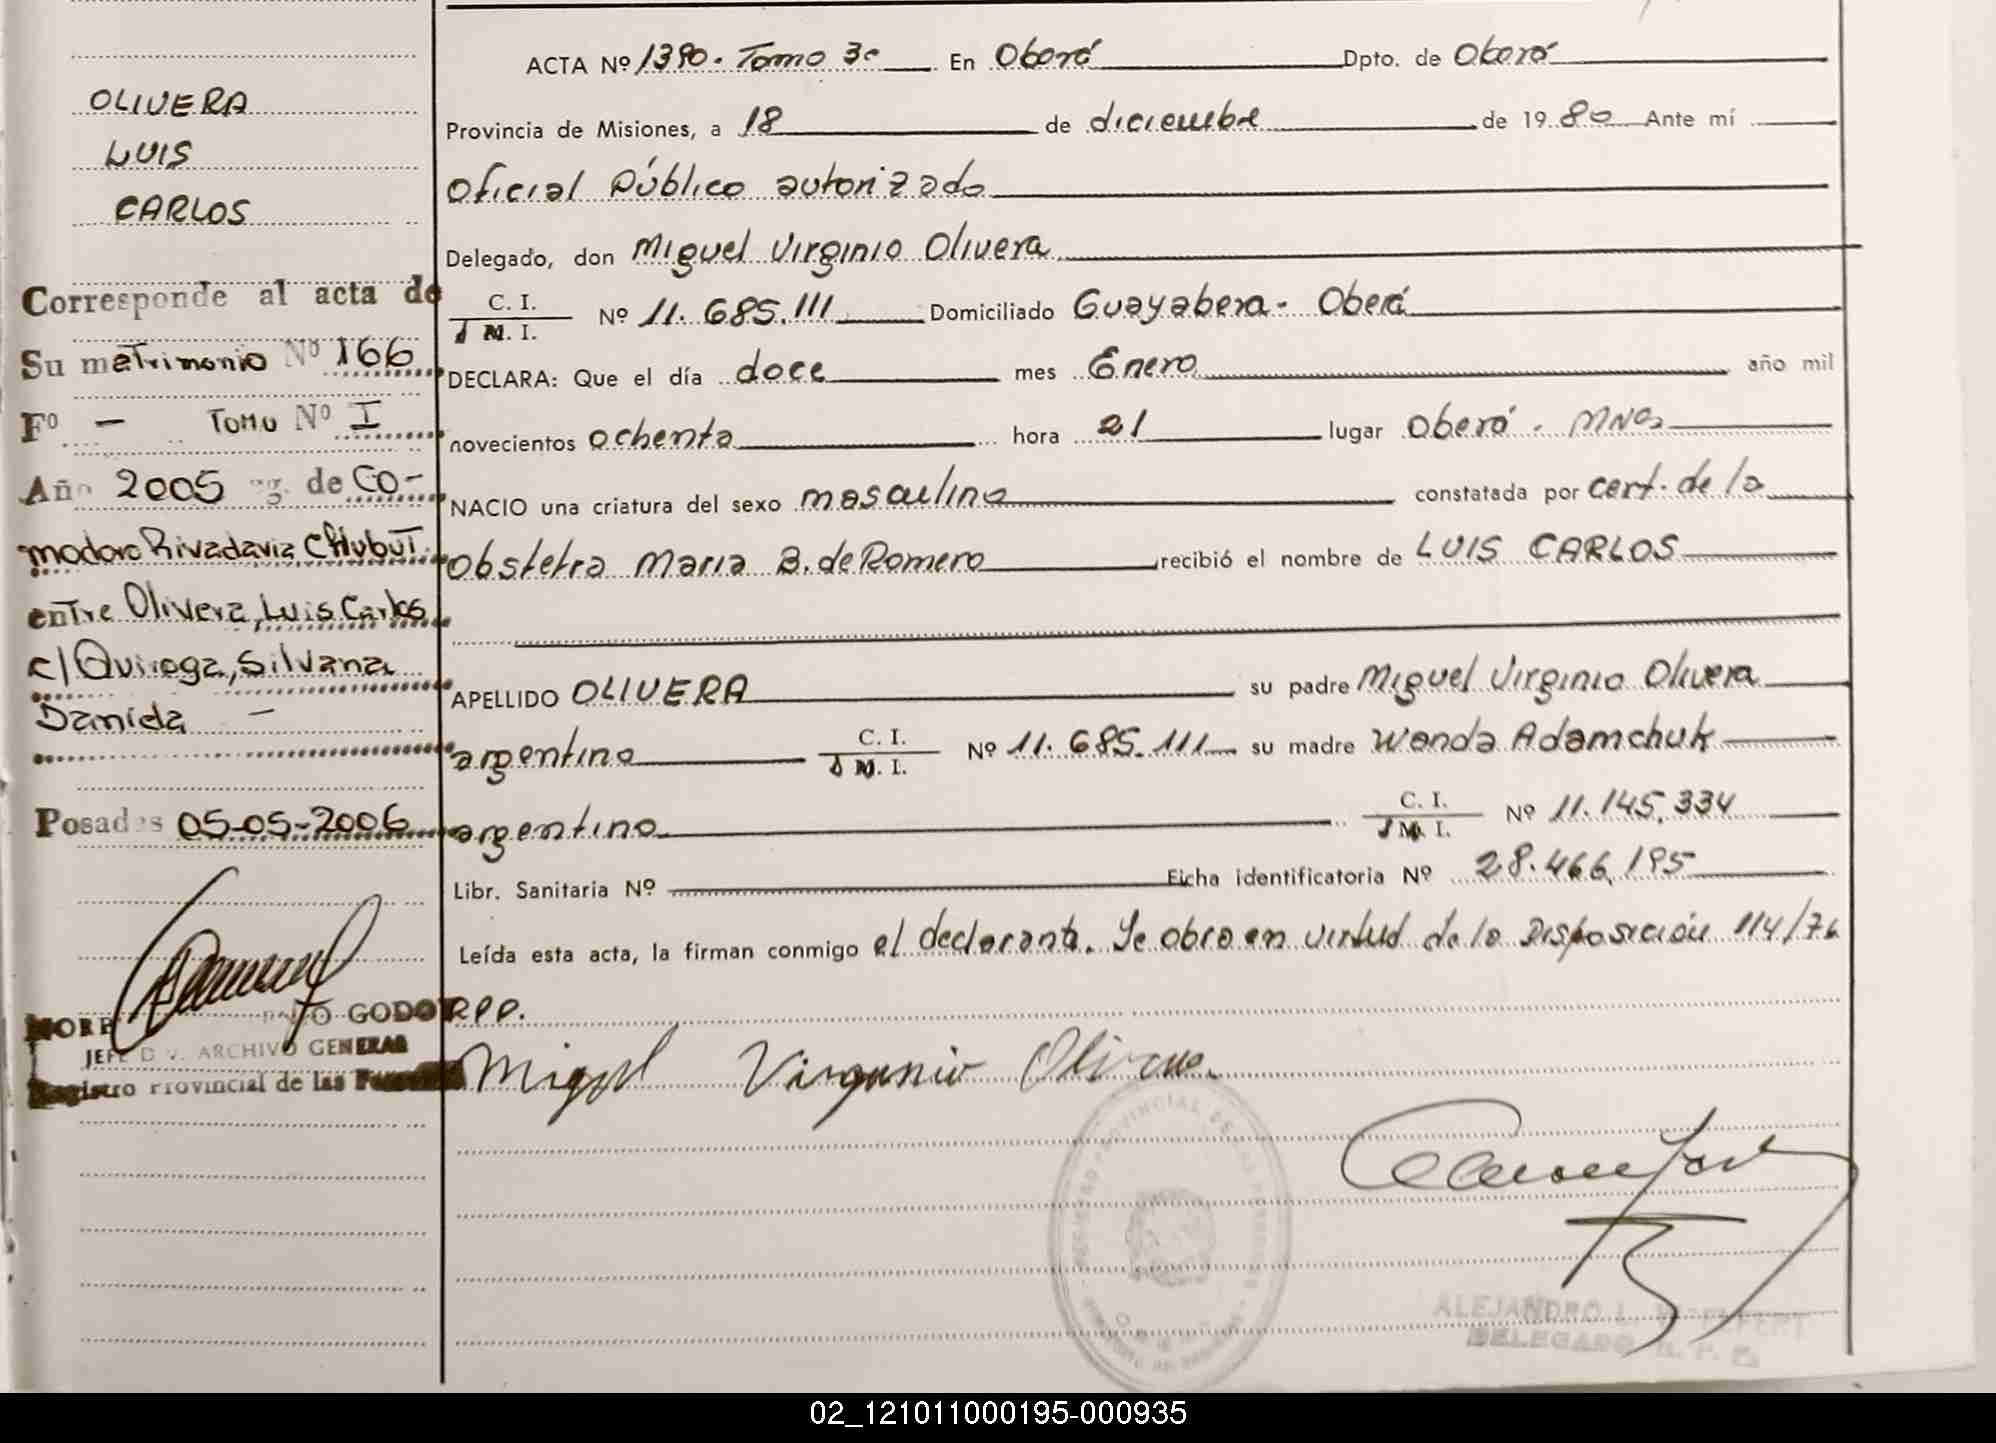 OLIVERA
LUIS
CARLOS
Corresponde al acta de
Su matrimonio Nº 166
Fº - Tomo Nº I
Año 2005 de Co-
modoro Rivadavia, Chubut
entre Olivera, Luis Carlos
c/ Quiroga, Silvana
Daniela -
Posadas 05-05-2006
GODOY
JEFE DIV. ARCHIVO GENERAL
Registro Provincial de las
ACTA Nº 1390. Tomo 3º En Oberá Dpto. de Oberá
Provincia de Misiones, a 18 de diciembre de 1980 Ante mí
Oficial Público autorizado
Delegado, don Miguel Virginio Olivera
C. I.
D N. I. Nº 11.685.111 Domiciliado Guayabera - Oberá
DECLARA: Que el día doce mes Enero año mil
novecientos ochenta hora 21 lugar Oberá. MNes
NACIO una criatura del sexo masculino constatada por cert. de la
Obstetra Maria B. de Romero recibió el nombre de LUIS CARLOS
APELLIDO OLIVERA su padre Miguel Virginio Olivera
argentino C. I. D N. I. Nº 11.685.111 su madre Wanda Adamchuk
argentino C. I. D N. I. Nº 11.145.334
Libr. Sanitaria Nº Ficha identificatoria Nº 28.466.195
Leída esta acta, la firman conmigo el declarante. Se obro en virtud de la Disposición 114/76
RPP.
Miguel Virginio Olivera
ALEJANDRO L.
DELEGADO R. P. P.
02_121011000195-000935